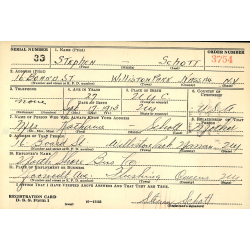 SERIAL NUMBER 33
1. NAME (Print) STEPHEN — SCHOTT
ORDER NUMBER 3754
2. ADDRESS (Print)
16 BOND ST WILLISTON PARK NASSAU NY
3. TELEPHONE
4. AGE IN YEARS 27
5. PLACE OF BIRTH
6. COUNTRY OF CITIZENSHIP
none
DATE OF BIRTH 1913 NY U.S.A.
7. NAME OF PERSON WHO WILL ALWAYS KNOW YOUR ADDRESS
8. RELATIONSHIP OF THAT PERSON
Mrs Katherine Schott Mother
9. ADDRESS OF THAT PERSON
16 Bond St Williston Park Nassau NY
10. EMPLOYER'S NAME
North Shore Bus Co
11. PLACE OF EMPLOYMENT OR BUSINESS
Ave. Flushing Queens NY
I AFFIRM THAT I HAVE VERIFIED ABOVE ANSWERS AND THAT THEY ARE TRUE.
REGISTRATION CARD
D. S. S. Form 1
Stephen Schott